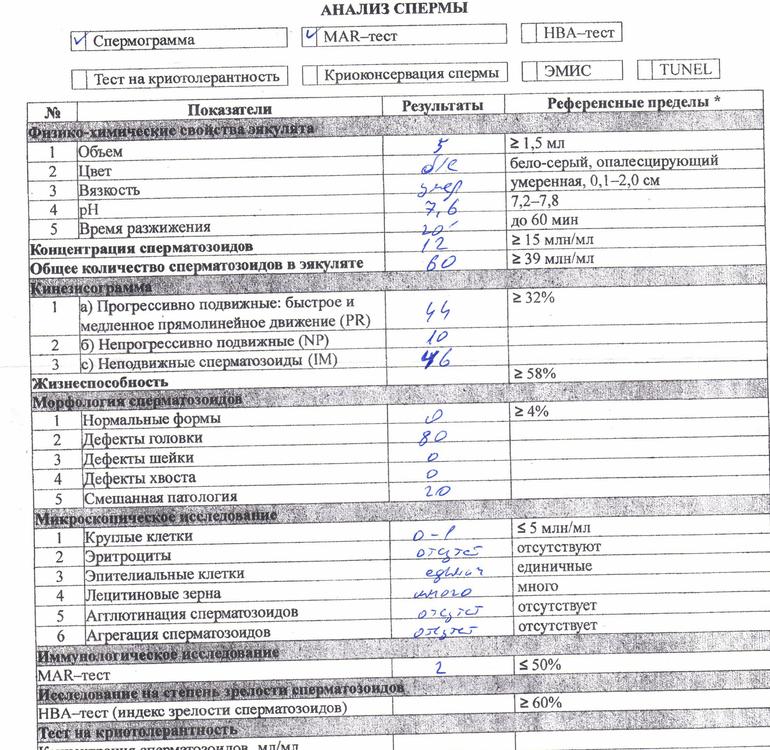 АНАЛИЗ СПЕРМЫ
Спермограмма MAR–тест HBA–тест
Тест на криотолерантность Криоконсервация спермы ЭМИС TUNEL
№ Показатели Результаты Референсные пределы *
Физико-химические свойства эякулята
1 Объем 5 ≥ 1,5 мл
2 Цвет б/с бело-серый, опалесцирующий
3 Вязкость умер умеренная, 0,1–2,0 см
4 pH 7,6 7,2–7,8
5 Время разжижения 20' до 60 мин
Концентрация сперматозоидов 12 ≥ 15 млн/мл
Общее количество сперматозоидов в эякуляте 60 ≥ 39 млн/мл
Кинезисограмма
1 а) Прогрессивно подвижные: быстрое и медленное прямолинейное движение (PR) 44 ≥ 32%
2 б) Непрогрессивно подвижные (NP) 10
3 с) Неподвижные сперматозоиды (IM) 46
Жизнеспособность ≥ 58%
Морфология сперматозоидов
1 Нормальные формы 0 ≥ 4%
2 Дефекты головки 80
3 Дефекты шейки 0
4 Дефекты хвоста 0
5 Смешанная патология 20
Микроскопическое исследование
1 Круглые клетки 0-1 ≤ 5 млн/мл
2 Эритроциты отсутст отсутствуют
3 Эпителиальные клетки единич единичные
4 Лецитиновые зерна много много
5 Агглютинация сперматозоидов отсутст отсутствует
6 Агрегация сперматозоидов отсутст отсутствует
Иммунологическое исследование
MAR–тест 2 ≤ 50%
Исследование на степень зрелости сперматозоидов
HBA–тест (индекс зрелости сперматозоидов) ≥ 60%
Тест на криотолерантность
Концентрация сперматозоидов, мл/мл